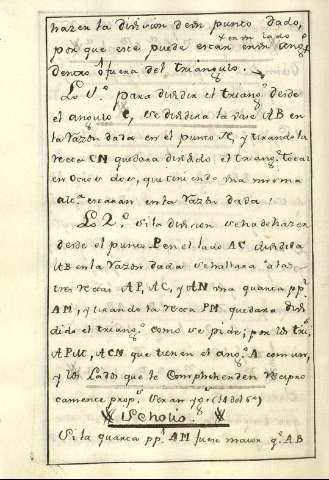 hazer la division dem punto dado,
+ en un lado
por que este puede estar en un ang.º
dentro, ó fuera del triangulo.
Lo 1.º para dividir el triang.º desde
el angulo C, se dividira la vase AB en
la razon dada en el punto N, y tirando la
recta CN quedara dividido el triang.º total
en otros dos, que teniendo una misma
alt.ª estaran en la razon dada.
Lo 2.º si la division se ha de hazer
desde el punto P en el lado AC dividida
AB en la razon dada se hallara a las
tres rectas AP, AC, y AN una quarta pp.ˡ
AM, y tirando la recta PM quedara divi
dido el triang.º como se pide; por los tri.ˢ
APM, ACN que tienen el ang.º A comun,
y los Lados que le Comprehenden recipro
camente prop.ˢ seran yg.ˢ (14 del 6º)
Scholio.
Si la quarta pp.ˡ AM fuere maior q.º AB